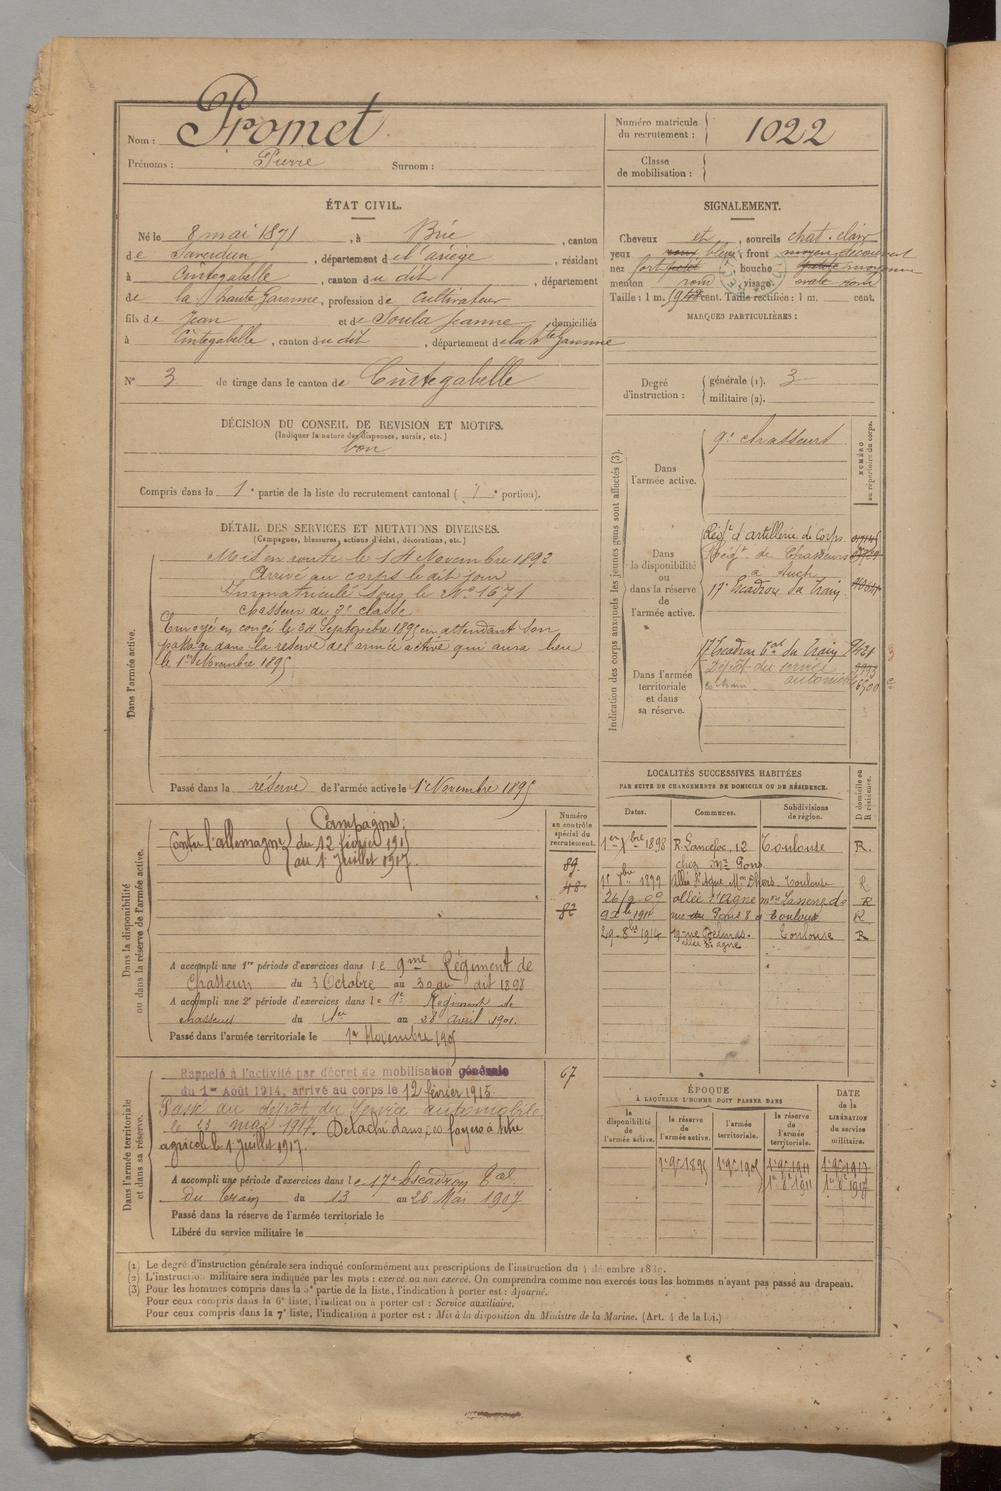 Nom : Promet
Prénoms : Pierre Surnom :
Numéro matricule du recrutement : 1022
Classe de mobilisation :
ÉTAT CIVIL.
Né le 8 mai 1871, à Brie, canton
de Saverdun, département de l'ariège, résidant
à Cintegabelle, canton du dit, département
de la haute Garonne, profession de cultivateur
fils de Jean et de Soula Jeanne, domiciliés
à Cintegabelle, canton du dit, département de la hte Garonne
N° 3 de tirage dans le canton de Cintegabelle
SIGNALEMENT.
Cheveux et, sourcils chat. clair
yeux bleus, front moyen découvert
nez fort petit, bouche petite moyenne
menton rond visage ovale rond
Taille : 1 m. cent. Taille rectifiée : 1 m. cent.
MARQUES PARTICULIÈRES :
Degré d'instruction : générale (1). 3
militaire (2).
DÉCISION DU CONSEIL DE REVISION ET MOTIFS.
(Indiquer la nature des dispenses, sursis, etc.)
bon
Compris dans la 1e partie de la liste du recrutement cantonal ( e portion).
DÉTAIL DES SERVICES ET MUTATIONS DIVERSES.
(Campagnes, blessures, actions d'éclat, décorations, etc.)
Dans l'armée active.
Mis en route le 14 Novembre 1892
Arrivé au corps le dit jour
Immatriculé sous le No 1671
chasseur de 2e classe
Envoyé en congé le 24 Septembre 1895 en attendant son
passage dans la réserve de l'armée active qui aura lieu
le 1er Novembre 1895
Passé dans la réserve de l'armée active le 1er Novembre 1895
Indication des corps auxquels les jeunes gens sont affectés (3).
NUMÉRO au répertoire du corps.
Dans l'armée active.
9e chasseurs
Dans la disponibilité ou dans la réserve de l'armée active.
Régt d'artillerie de Corps
Régt de Chasseurs
à Auch
17e Escadron du Train
Dans l'armée territoriale et dans sa réserve.
17 Escadron tal du Train
Dépôt du service automobile
Dans la disponibilité ou dans la réserve de l'armée active.
Numéro au contrôle spécial du recrutement.
Campagnes :
Contre l'allemagne du 12 février 1915
au 1er Juillet 1917.
89.
48
82
A accompli une 1re période d'exercices dans le 9me Régiment de
Chasseurs du 3 Octobre au 30 du dit 1898
A accompli une 2e période d'exercices dans le 9e Régiment de
chasseurs du 1er au 28 avril 1901.
Passé dans l'armée territoriale le 1er Novembre 1905
LOCALITÉS SUCCESSIVES HABITÉES
PAR SUITE DE CHANGEMENTS DE DOMICILE OU DE RÉSIDENCE.
Dates. Communes. Subdivisions de région. D domicile ou R résidence.
1er bre 1898 R. Lancefoc, 12 Toulouse R.
chez Mr Pons
1899 Allée St Agne Toulouse R
26/9 00 allée St Agne do R
1911 rue du Pons 8 Toulouse R
29 8bre 1914 19 rue Delmas. Toulouse R
allée St agne
Dans l'armée territoriale et dans sa réserve.
Rappelé à l'activité par décret de mobilisation générale
du 1er Août 1914, arrivé au corps le 12 février 1915
67
Passé au dépôt du Service automobile
le 13 mai 1917. Détaché dans ses foyers à titre
agricole le 1er Juillet 1917.
A accompli une période d'exercices dans le 17e Escadron Tal
du Train du 13 au 26 Mai 1907
Passé dans la réserve de l'armée territoriale le
Libéré du service militaire le
ÉPOQUE
À LAQUELLE L'HOMME DOIT PASSER DANS
la disponibilité de l'armée active. la réserve de l'armée active. l'armée territoriale. la réserve de l'armée territoriale. DATE de la LIBÉRATION du service militaire.
1er 9bre 1895 1er 9bre 1905 1er 9bre 1911 1er 9bre 1917
(1) Le degré d'instruction générale sera indiqué conformément aux prescriptions de l'instruction du 4 décembre 1889.
(2) L'instruction militaire sera indiquée par les mots : exercé ou non exercé. On comprendra comme non exercés tous les hommes n'ayant pas passé au drapeau.
(3) Pour les hommes compris dans la 5e partie de la liste, l'indication à porter est : Ajourné.
Pour ceux compris dans la 6e liste, l'indication à porter est : Service auxiliaire.
Pour ceux compris dans la 7e liste, l'indication à porter est : Mis à la disposition du Ministre de la Marine. (Art. 4 de la loi.)